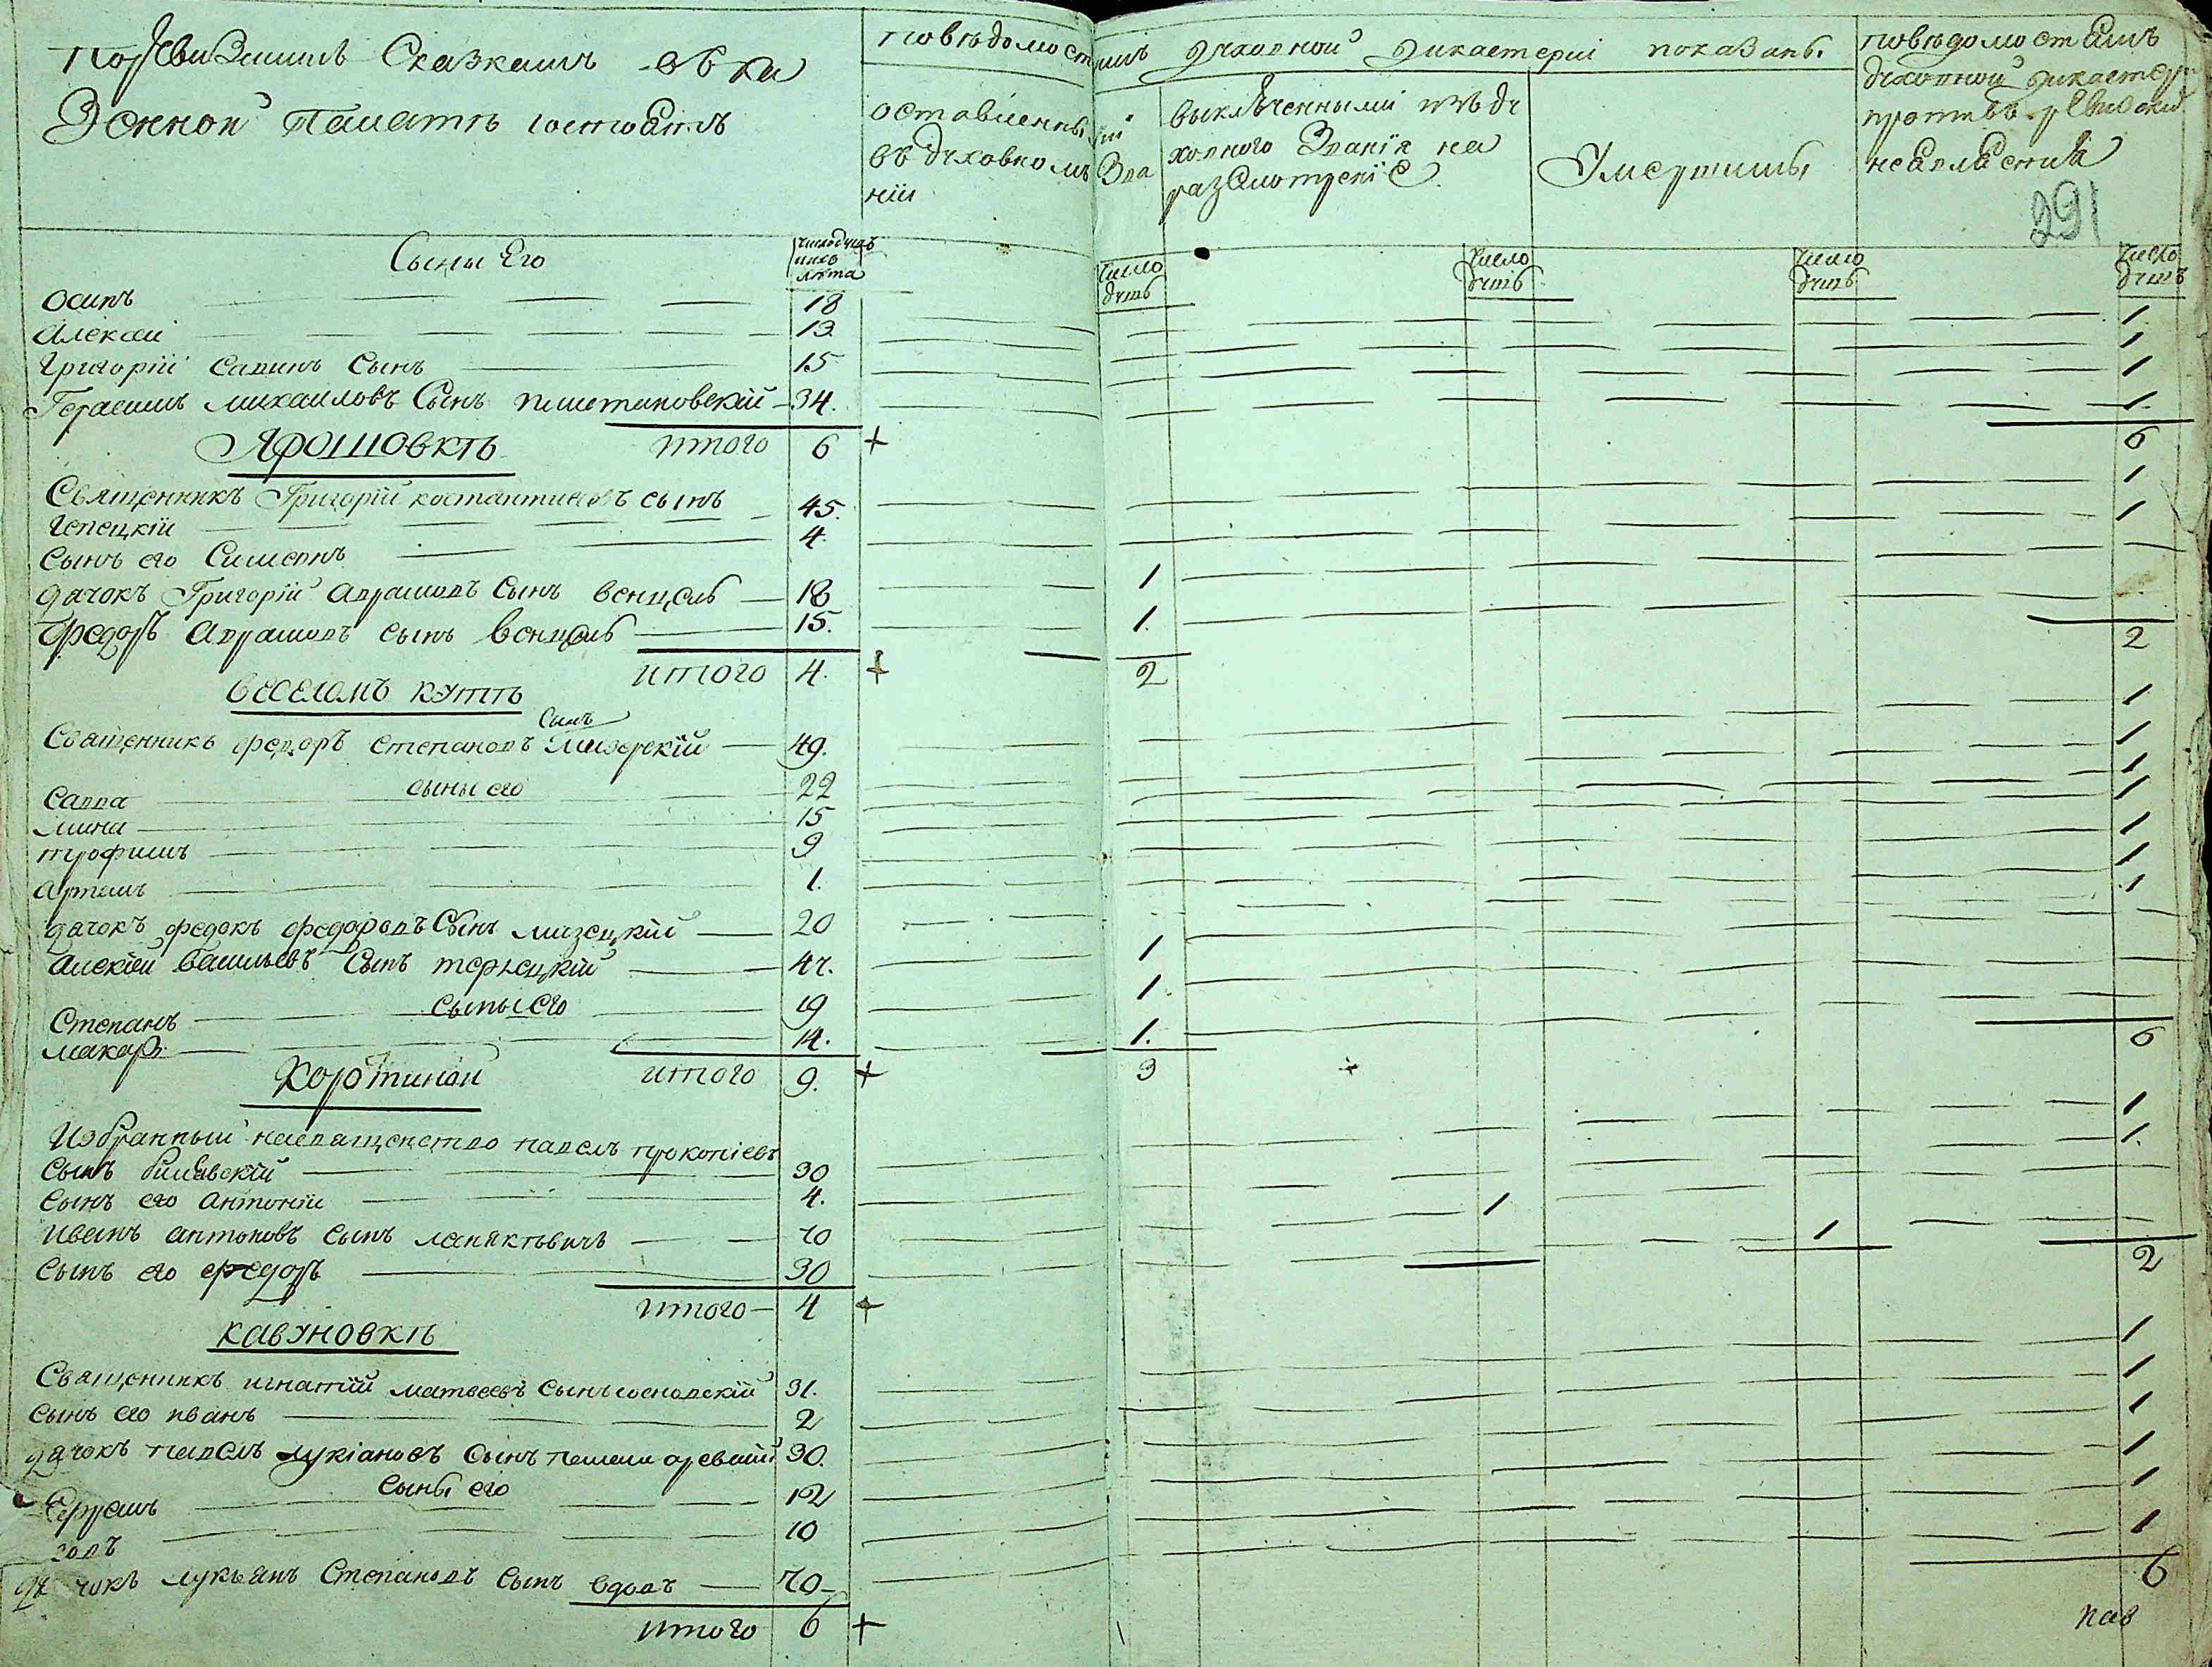 По ревизкимъ Сказкамъ въ ка
Зенной Палатѣ состоитъ
Повѣдомостямъ духовной дикастеріи показаны
оставленными
въ духовномъ Зва
ніи
выключенными изъ ду
ховного Званія на
разсмотреніе
Умершимы
повѣдомостямъ
духовной дикастеріи
противъ ревизской
291
Сыны Его
число душъ
лѣта
число душъ
число душъ
число душъ
число душъ
Осипъ 18 1
Алексей 13 1
Григорій Савинъ Сынъ 15 1
Герасимъ михаиловъ Сынъ 34. 1
итого 6 + 6
Ярошовкѣ
Священникъ Григорій костантиновъ сынъ
45. 1
Сынъ его Симеонъ 4. 1
дячокъ Григорій Аврамовъ Сынъ венцель 18 1
Федоръ Аврамовъ сынъ венцель 15. 1.
итого 4. + 2 2
веселомъ кутѣ
Священникъ федоръ степановъ Сынъ 49. 1
сыны его
Савва 22 1
мина 15 1
трофимъ 9 1
Артемъ 1. 1
дячокъ федоръ федоровъ Сынъ мизецкій 20 1
Алексей Васильевъ Сынъ терлецкій 47. 1
сыны его
Степанъ 19 1.
макаръ 14. 1.
итого 9. + 3 6
Коротиной
Избранный насвященство павелъ прокопіевъ
Сынъ 30 1
Сынъ его Антоній 4. 1.
Иванъ антоновъ сынъ 70 1
Сынъ его федоръ 30 1
итого 4 + 2
кавуновкѣ
Священникъ игнатій матвеевъ Сынъ сосновскій 31. 1
Сынъ его иванъ 2 1
дячокъ павелъ лукіановъ Сынъ 30. 1
Сыны его
Ефремъ 12 1
10 1
дячокъ лукьянъ Степановъ Сынъ вдовъ 70 1
итого 6 + 6
пав